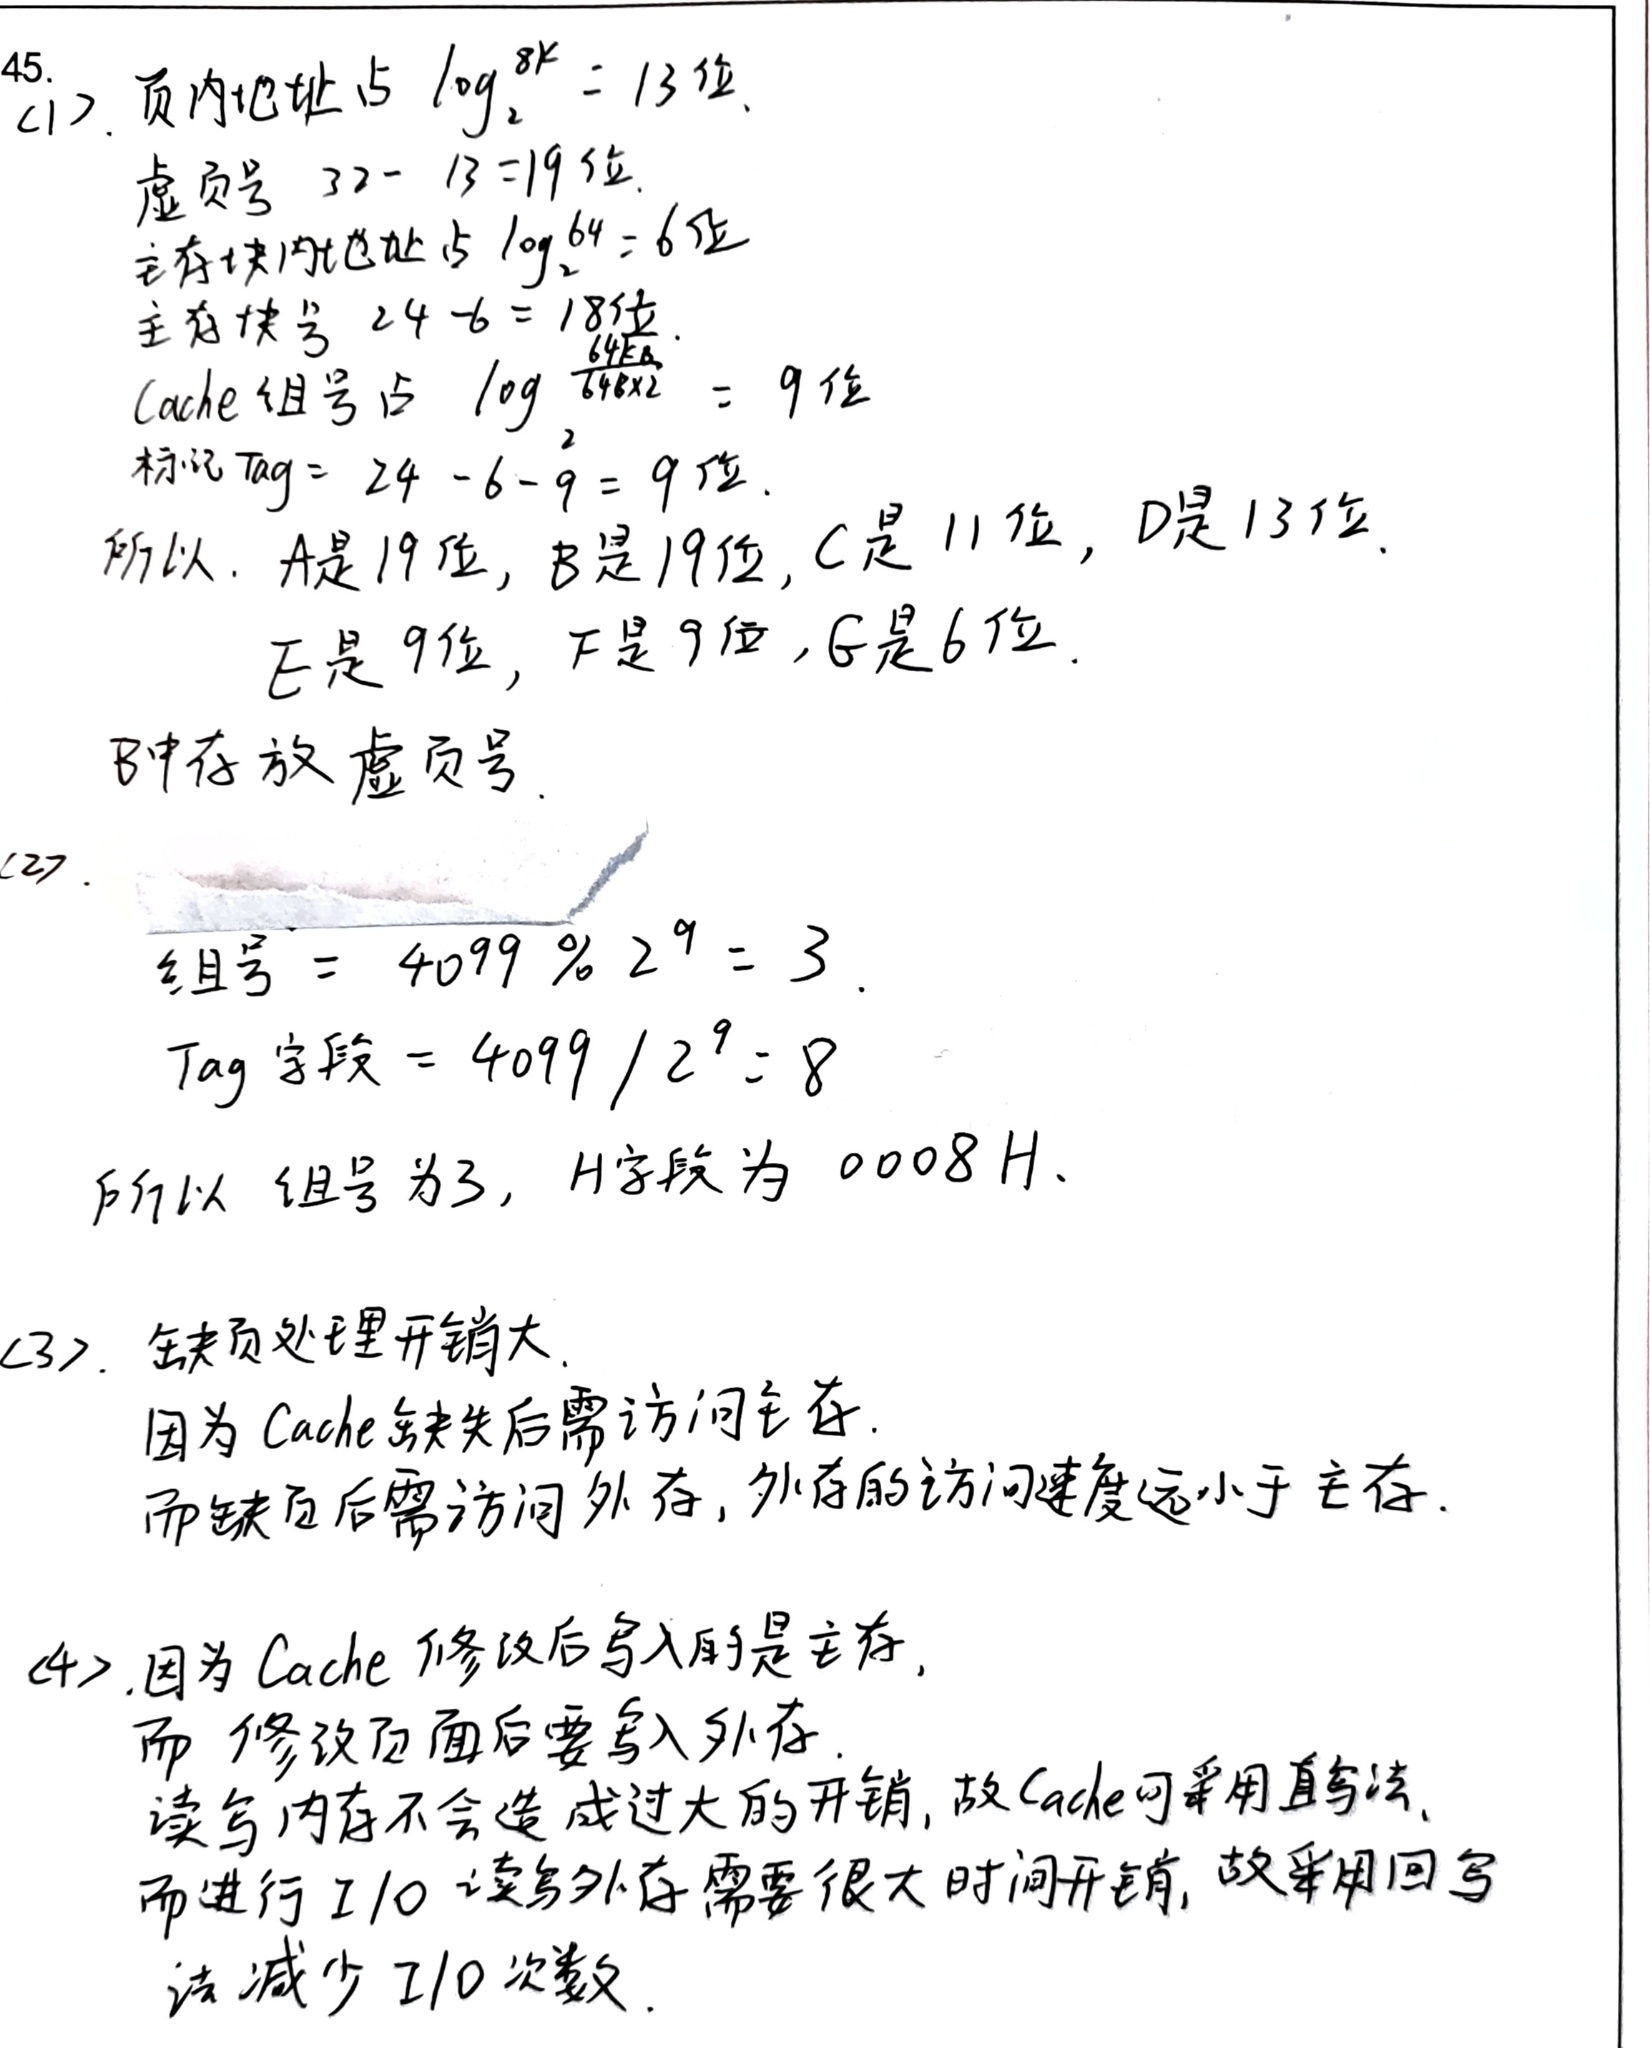 45.
<1>. 页内地址占 log₂8K = 13位.
虚页号 32 - 13 = 19位.
主存块内地址占 log₂64 = 6位
主存块号 24 - 6 = 18位.
Cache组号占 log₂ 64KB/64B×2 = 9位
标记Tag = 24 - 6 - 9 = 9位.
所以. A是19位, B是19位, C是11位, D是13位.
E是9位, F是9位, G是6位.
B中存放虚页号.
<2>.
组号 = 4099 % 2⁹ = 3.
Tag字段 = 4099 / 2⁹ = 8
所以 组号为3, H字段为 0008H.
<3>. 缺页处理开销大.
因为Cache缺失后需访问主存.
而缺页后需访问外存, 外存的访问速度远小于主存.
<4>. 因为Cache修改后写入的是主存,
而修改页面后要写入外存.
读写内存不会造成过大的开销, 故Cache可采用直写法,
而进行I/O读写外存需要很大时间开销, 故采用回写
法减少I/O次数.